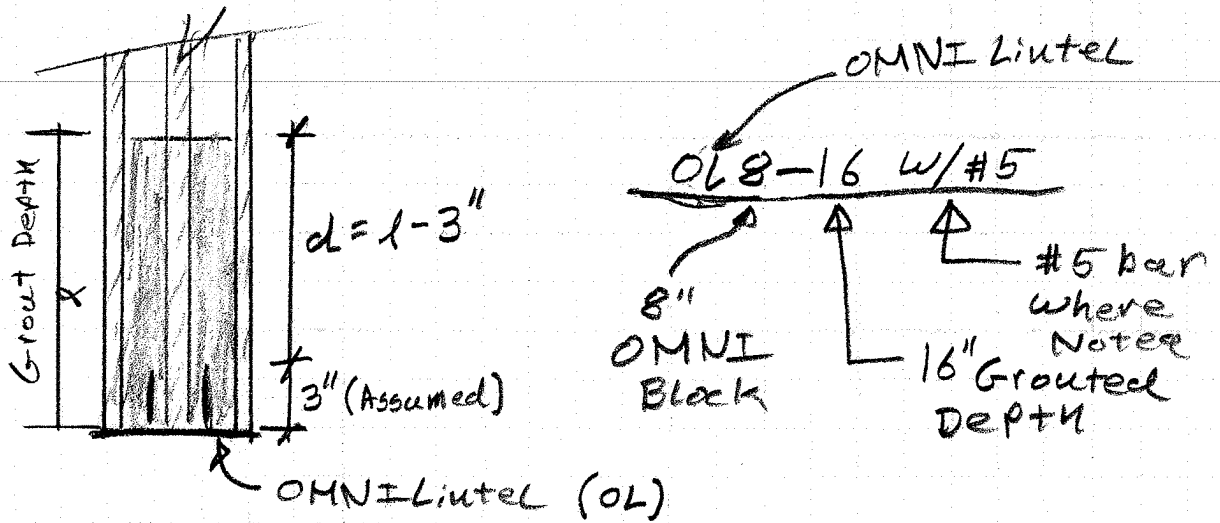 Grout Depth
l
d = l - 3"
3" (Assumed)
OMNI Lintel (OL)
OMNI Lintel
OL 8-16 W/#5
8"
OMNI
Block
16" Grouted
Depth
#5 bar
where
Noted